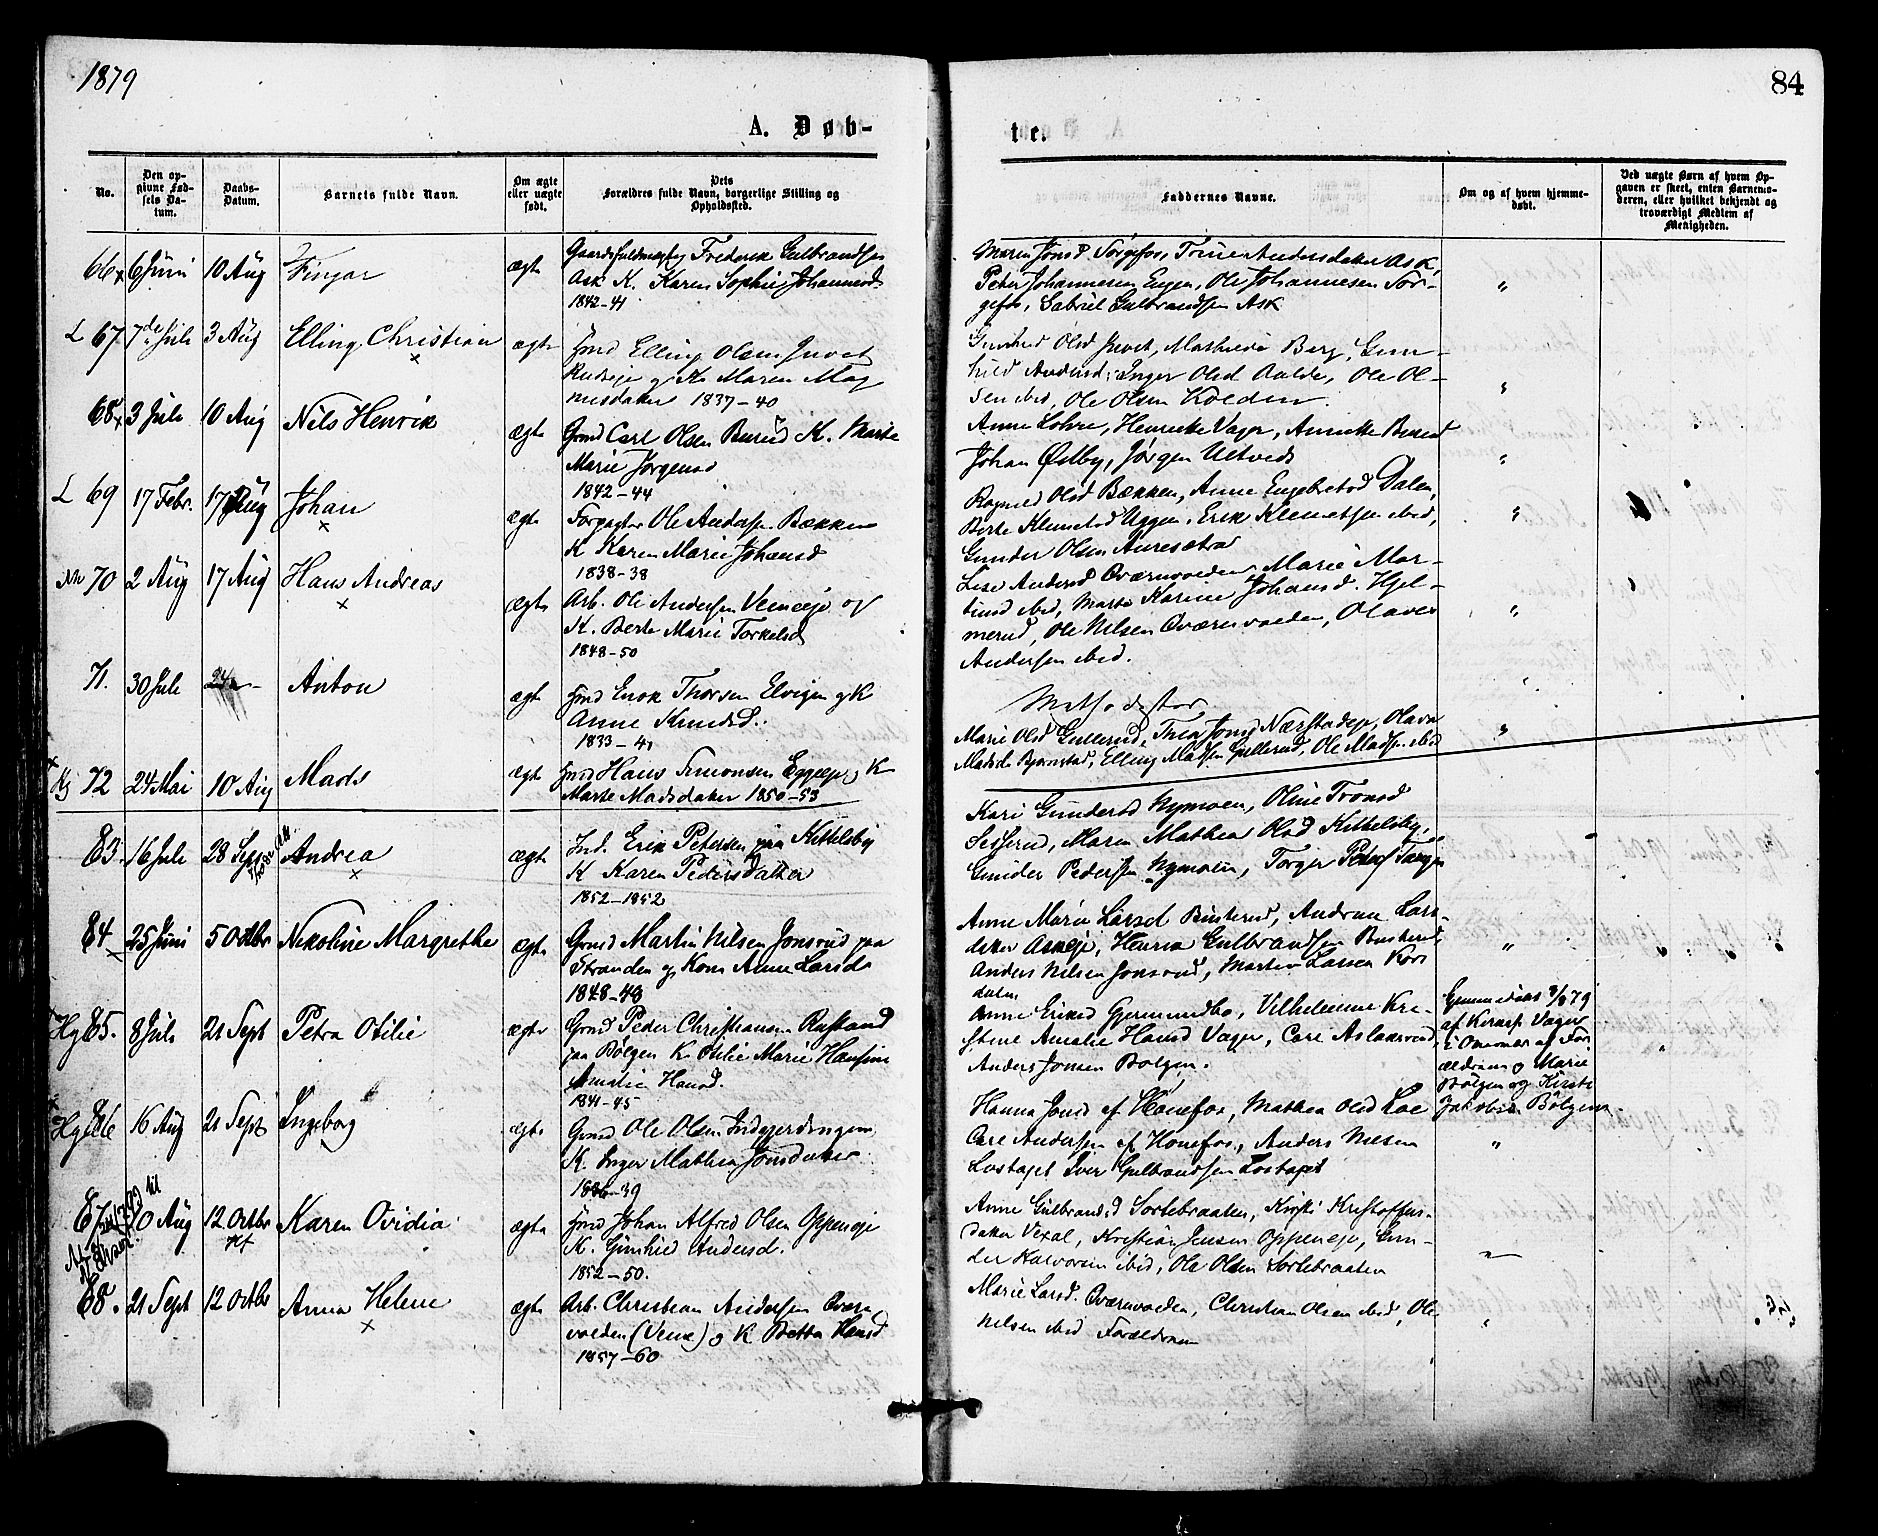 1879
84
A. Døb-
te.
No.
Den op-
givne Fød-
sels Da-
tum.
Daabs-
Datum.
Barnets fulde Navn.
Om ægte
eller uægte
født.
Dets
Forældres fulde Navn, borgerlige Stilling og
Opholdssted.
Faddernes Navne.
Om og af hvem hjemme-
døbt.
Ved uægte Børn af hvem Op-
gaven er skeet, enten Barnemo-
deren, eller hvilket bekjendt og
troværdigt Medlem af
Menigheden.
66 6 Juni 10 Aug ægte
Frederik Gulbrandsen
Ask K. Karen Sophie Johannesd
1842-41
Maren Jonsd Sørgefos, Trine Andersdatter Ask,
Peter Johannesen Engen, Ole Johannesen Sør-
gefos, Gabriel Gulbrandsen Ask
L 67 7de Juli 3 Aug Elling Christian ægte
Elling Olsen Juvet
og K Maren Mag
nusdatter 1837-40
Olsd Juvet, Mathilde Berg, Gun-
hild Andersd, Inger Olsd Aulde, Ole Ol-
sen ibid, Ole Olsen Kolden.
68 3 Juli 10 Aug Nils Henrik ægte
Grmd Carl Olsen Burud K. Marte
Marie Jørgensd
1842-44
Anne Lohre, Henrikke Vager, Annette Burud
Johan Østby, Jørgen Ultveds
L 69 17 Febr. 17 Aug Johan ægte
Forpagter Ole Andersen Bækken
K Karen Marie Johansd
1838-38
Ragnild Olsd Bækken, Anne Engebretsd Dalen,
Berte Klemetsd Uggen, Erik Klemetsen ibid,
Gunder Olsen Auresætra
70 2 Aug 17 Aug Hans Andreas ægte
Arb. Ole Andersen Vemeeje og
K. Berte Marie Torkelsd
1848-50
Lise Andersd Qværnvolden, Marie Mar-
tinsd ibid, Marte Karine Johansd. Hjel-
merud, Ole Nilsen Qværnvolden, Olaves
Andersen ibid.
71. 30 Juli 24 Anton ægte
Enok Thorsen Elvigen og K
Anne Knudsd.
1833-41
Methodister
72 24 Mai 10 Aug Mads ægte
Hans Simonsen Eggeeje K
Marte Madsdatter 1850-53
Marie Olsd Gullerud, Thea Jonsd Nærstadeje, Olava
Madsd Bjørnstad, Elling Madsen Gullerud, Ole Madsen ibid
83. 16 Juli 28 Sept Andrea ægte
Ind. Erik Petersen paa Kittelsby
K Karen Pedersdatter
1852-1852
Kari Gundersd Nymoen, Oline Tronsd
Sesserud, Maren Mathea Olsd Kittelsby,
Gunder Pedersen Nymoen, Torger
84. 25 Juni 5 Octbr Nikoline Margrethe ægte
Grmd Martin Nilsen Jonsrud paa
Stranden og Kone Anne Larsd
1848-48
Anne Marie Larsd Busterud, Andrine Lars-
datter Askeje, Henrik Gulbrandsen Busterud,
Anders Nilsen Jonsrud, Martin Larsen Kors
dalen.
Hg 85. 8 Juli 21 Sept Petra Otilie ægte
Grmd Peder Christiansen Rustand
paa Bølgen K Otilie Marie Hansine
Amalia Hansd.
1841-45
Anne Eriksd Gjermundbo, Vilhelmine Kri-
stine Amalie Hansd Vager, Carl Aslaksrud,
Anders Jonsen Bolgen.
Hjemmedøbt 8/8 79
af Kirkes. Vager
i Overvær af For
ældrene og Marie
Bølgen og Kirsti
Jakobsd. Bölgen
Hg 86 16 Aug 21 Sept Ingeborg ægte
Grmd Ole Olsen
K. Inger Mathea Jonsdatter
1836-39
Hanna Jonsd af Hønefos, Mathea Olsd Loe
Carl Andersen af Hønefos, Anders Nilsen
Lostaget Iver Gulbrandsen Lostaget
87 10 Aug 12 Octbr Karen Ovidia ægte
Johan Alfred Olsen Oppeneje
K. Gunhild Andersd.
1852-50.
Anne Gulbrandsd Sortebraaten, Kirsti Kristoffers-
datter Vexal, Kristian Jensen Oppeneje, Gun-
der Halvorsen ibid, Ole Olsen Sortebraaten
88. 21 Sept 12 Octbr Anna Helene ægte
Arb. Christian Andersen Qværn
volden (Veme) og K Betta Hansd
1857-60
Marie Larsd. Qværnvolden, Christian Olsen ibid, Ole
Nilsen ibid Forældrene